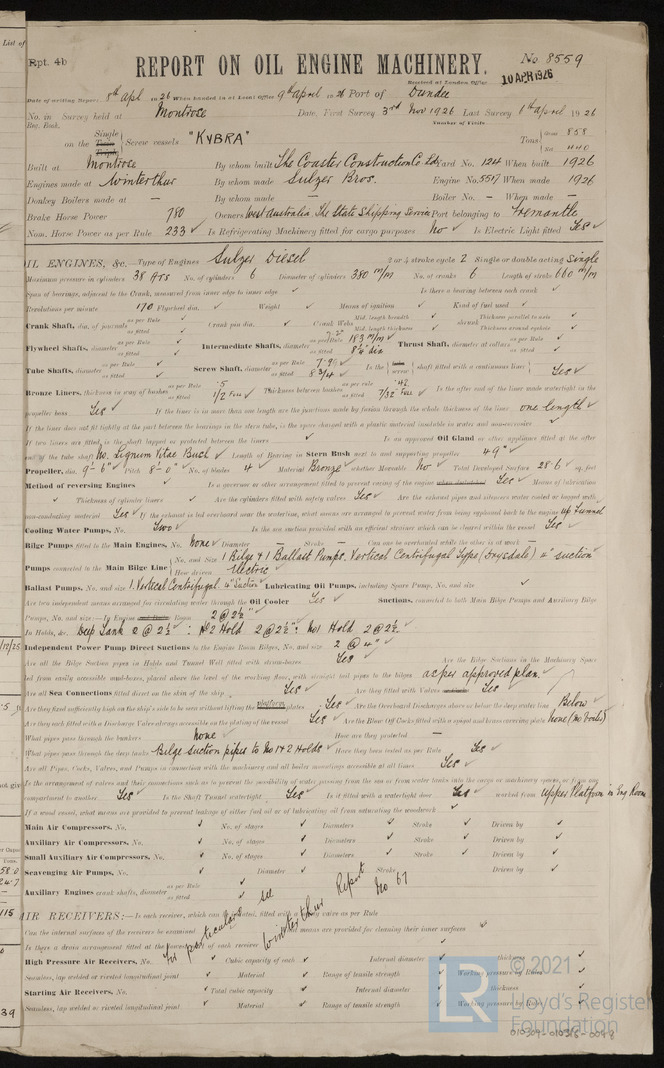 List of
Rpt. 4b
REPORT ON OIL ENGINE MACHINERY.
No 8559
Received at London Office
10 APR 1926
Date of writing Report 8th Apl 1926 When handed in at Local Office 9th April 1926 Port of Dundee
No. in Reg. Book. Survey held at Montrose Date, First Survey 3rd Nov 1926 Last Survey 1st April 1926
Number of Visits
on the Single Twin Triple Screw vessels "KYBRA" Tons Gross 858 Net 440
Built at Montrose By whom built The Coaster Construction Co. Ltd Yard No. 124 When built 1926
Engines made at Winterthur By whom made Sulzer Bros. Engine No. 5517 When made 1926
Donkey Boilers made at — By whom made — Boiler No. — When made —
Brake Horse Power 780 Owners West Australia The State Shipping Service Port belonging to Fremantle
Nom. Horse Power as per Rule 233 ✓ Is Refrigerating Machinery fitted for cargo purposes No ✓ Is Electric Light fitted Yes ✓
OIL ENGINES, &c. Type of Engines Sulzer Diesel 2 or 4 stroke cycle 2 Single or double acting Single
Maximum pressure in cylinders 38 Ats No. of cylinders 6 Diameter of cylinders 380 m/m No. of cranks 6 Length of stroke 660 m/m
Span of bearings, adjacent to the Crank, measured from inner edge to inner edge ✓ Is there a bearing between each crank ✓
Revolutions per minute 170 Flywheel dia. ✓ Weight ✓ Means of ignition ✓ Kind of fuel used ✓
Crank Shaft, dia. of journals as per Rule ✓ as fitted ✓ Crank pin dia. ✓ Crank Webs Mid. length breadth ✓ Mid. length thickness ✓ shrunk Thickness parallel to axis ✓ Thickness around eyehole ✓
Flywheel Shafts, diameter as per Rule ✓ as fitted ✓ Intermediate Shafts, diameter as per Rule 183 m/m ✓ as fitted 8¼" dia Thrust Shaft, diameter at collars as per Rule ✓ as fitted ✓
Tube Shafts, diameter as per Rule ✓ as fitted ✓ Screw Shaft, diameter as per Rule 7.95 as fitted 8 3/4 ✓ Is the tube screw shaft fitted with a continuous liner Yes ✓
Bronze Liners, thickness in way of bushes as per Rule .5 as fitted 1/2 Full ✓ Thickness between bushes as per rule .42 as fitted 7/32" Full ✓ Is the after end of the liner made watertight in the
propeller boss Yes ✓ If the liner is in more than one length are the junctions made by fusion through the whole thickness of the liner one length ✓
If the liner does not fit tightly at the part between the bearings in the stern tube, is the space charged with a plastic material insoluble in water and non-corrosive ✓
If two liners are fitted, is the shaft lapped or protected between the liners ✓ Is an approved Oil Gland or other appliance fitted at the after
end of the tube shaft No. Lignum Vitae Bush ✓ Length of Bearing in Stern Bush next to and supporting propeller 49" ✓
Propeller, dia. 9'-6" ✓ Pitch 8'-0" ✓ No. of blades 4 ✓ Material Bronze ✓ whether Moveable No ✓ Total Developed Surface 28.6 ✓ sq. feet
Method of reversing Engines ✓ Is a governor or other arrangement fitted to prevent racing of the engine when declutched Yes ✓ Means of lubrication
✓ Thickness of cylinder liners ✓ Are the cylinders fitted with safety valves Yes ✓ Are the exhaust pipes and silencers water cooled or lagged with
non-conducting material Yes ✓ If the exhaust is led overboard near the waterline, what means are arranged to prevent water from being syphoned back to the engine up Funnel
Cooling Water Pumps, No. Two ✓ Is the sea suction provided with an efficient strainer which can be cleared within the vessel Yes ✓
Bilge Pumps fitted to the Main Engines, No. None ✓ Diameter — Stroke — Can one be overhauled while the other is at work —
Pumps connected to the Main Bilge Line No. and Size 1 Bilge & 1 Ballast Pumps. Vertical Centrifugal Type (Drysdale) 4" suction ✓
How driven Electric ✓
Ballast Pumps, No. and size 1 Vertical Centrifugal 4" Suction ✓ Lubricating Oil Pumps, including Spare Pump, No. and size ✓
Are two independent means arranged for circulating water through the Oil Cooler Yes ✓ Suctions, connected to both Main Bilge Pumps and Auxiliary Bilge
Pumps, No. and size:—In Engine Room 2 @ 2½"
In Holds, &c. Deep Tank 2 @ 2½": No 2 Hold 2 @ 2½": No 1 Hold 2 @ 2½
Independent Power Pump Direct Suctions to the Engine Room Bilges, No. and size 2 @ 4" ✓
Are all the Bilge Suction pipes in Holds and Tunnel Well fitted with strum-boxes Yes ✓ Are the Bilge Suctions in the Machinery Space
led from easily accessible mud-boxes, placed above the level of the working floor, with straight tail pipes to the bilges as per approved plan. ✓
Are all Sea Connections fitted direct on the skin of the ship Yes ✓ Are they fitted with Valves or Cocks Yes ✓
Are they fixed sufficiently high on the ship's side to be seen without lifting the platform plates Yes ✓ Are the Overboard Discharges above or below the deep water line Below
Are they each fitted with a Discharge Valve always accessible on the plating of the vessel Yes ✓ Are the Blow Off Cocks fitted with a spigot and brass covering plate None (no boiler)
What pipes pass through the bunkers None ✓ How are they protected —
What pipes pass through the deep tanks Bilge suction pipes to No 1 & 2 Holds ✓ Have they been tested as per Rule Yes ✓
Are all Pipes, Cocks, Valves, and Pumps in connection with the machinery and all boiler mountings accessible at all times Yes ✓
Is the arrangement of valves and their connections such as to prevent the possibility of water passing from the sea or from water tanks into the cargo or machinery spaces, or from one
compartment to another Yes ✓ Is the Shaft Tunnel watertight Yes ✓ Is it fitted with a watertight door Yes ✓ worked from upper Platform in Eng Room
If a wood vessel, what means are provided to prevent leakage of either fuel oil or of lubricating oil from saturating the woodwork ✓
Main Air Compressors, No. ✓ No. of stages ✓ Diameters ✓ Stroke ✓ Driven by ✓
Auxiliary Air Compressors, No. ✓ No. of stages ✓ Diameters ✓ Stroke ✓ Driven by ✓
Small Auxiliary Air Compressors, No. ✓ No. of stages ✓ Diameters ✓ Stroke ✓ Driven by ✓
Scavenging Air Pumps, No. ✓ Diameter ✓ Stroke Driven by ✓
Auxiliary Engines crank shafts, diameter as per Rule ✓ as fitted ✓
for particulars see Winterthur Report No 67
AIR RECEIVERS:—Is each receiver, which can be isolated, fitted with a safety valve as per Rule
Can the internal surfaces of the receivers be examined What means are provided for cleaning their inner surfaces ✓
Is there a drain arrangement fitted at the lowest part of each receiver ✓
High Pressure Air Receivers, No. ✓ Cubic capacity of each ✓ Internal diameter ✓ thickness ✓
Seamless, lap welded or riveted longitudinal joint ✓ Material ✓ Range of tensile strength ✓ Working pressure by Rules ✓
Starting Air Receivers, No. ✓ Total cubic capacity ✓ Internal diameter ✓ thickness ✓
Seamless, lap welded or riveted longitudinal joint ✓ Material ✓ Range of tensile strength ✓ Working pressure by Rules ✓
LR
© 2021
Lloyd's Register
Foundation
010309-010318-0098